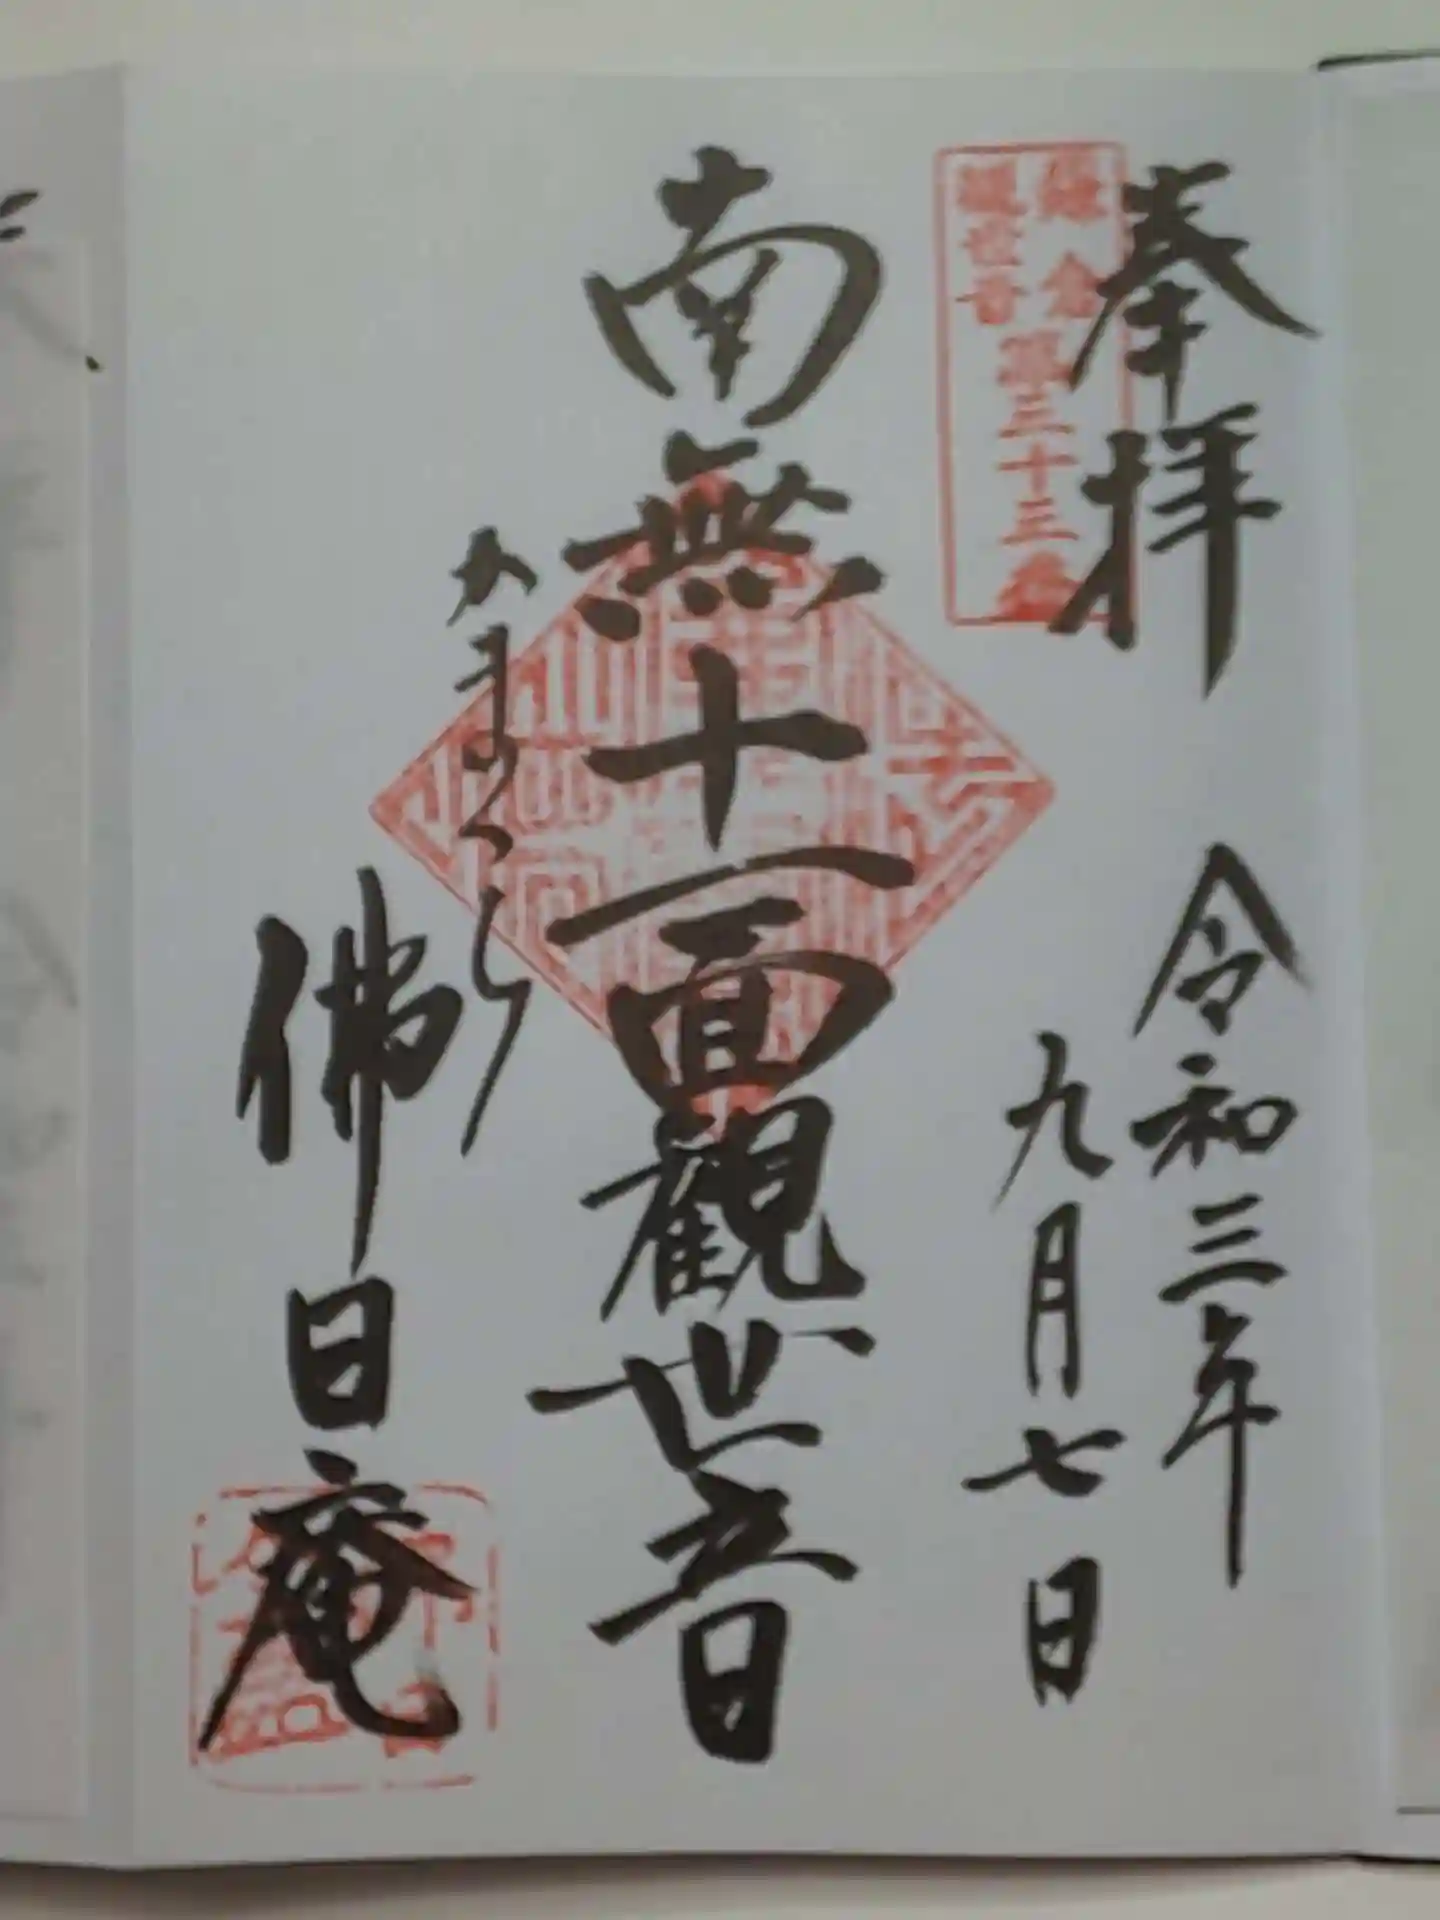 奉拝
鎌倉
観世音
第三十三番
令和三年
九月七日
南無十一面観世音
かまくら
佛日庵